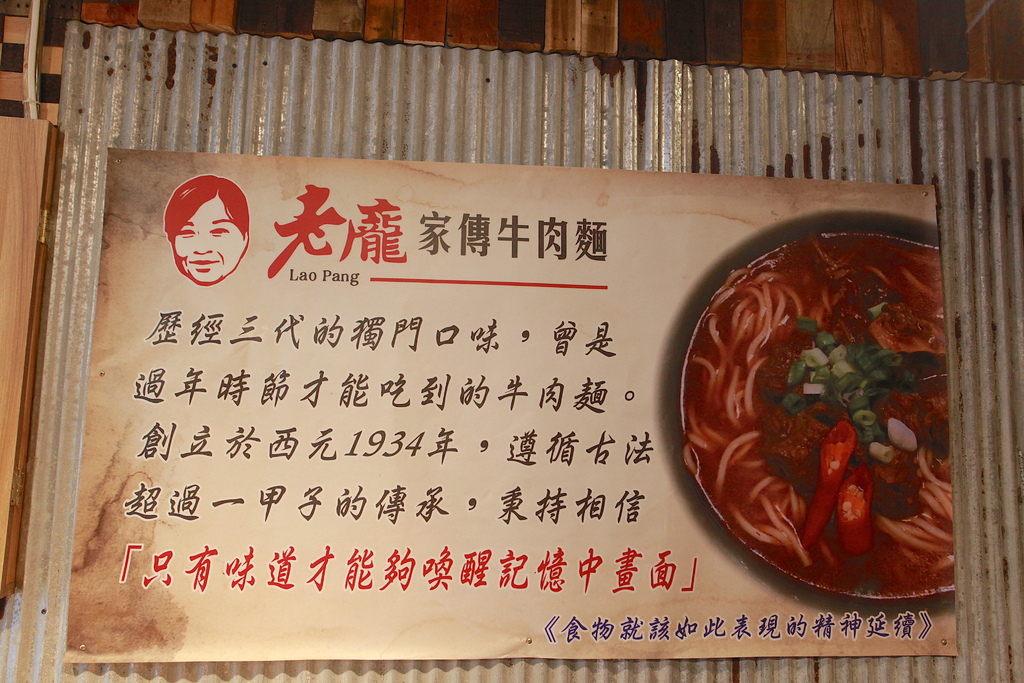 老龐 家傳牛肉麵
Lao Pang
歷經三代的獨門口味，曾是
過年時節才能吃到的牛肉麵。
創立於西元1934年，遵循古法
超過一甲子的傳承，秉持相信
「只有味道才能夠喚醒記憶中畫面」
《食物就該如此表現的精神延續》